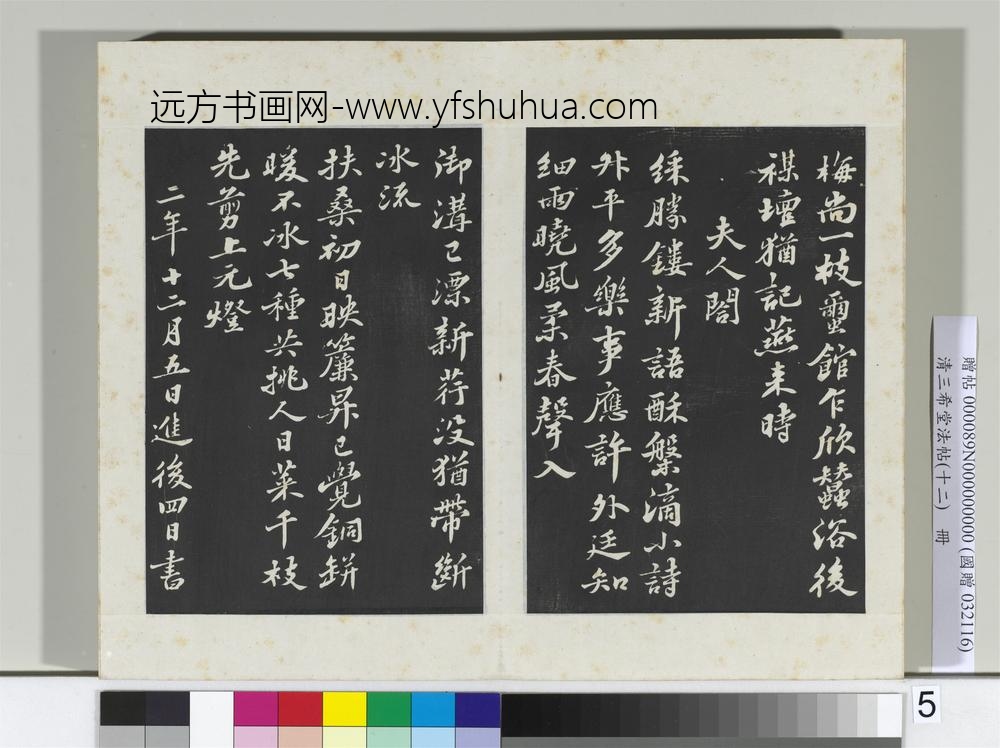 远方书画网-www.yfshuhua.com
梅尚一枝蠒館乍欣蠶浴後
禖壇猶記燕来時
夫人閤
綵勝鏤新語酥槃滴小詩
升平多樂事應許外廷知
細雨曉風柔春聲入
御溝已漂新荇没猶帶斷
冰流
扶桑初日映簾昇已覺銅缾
暖不冰七種共挑人日菜千枝
先剪上元燈
二年十二月五日進後四日書
贈帖 0000089N000000000 (國贈 032116)
清三希堂法帖(十二) 冊
5